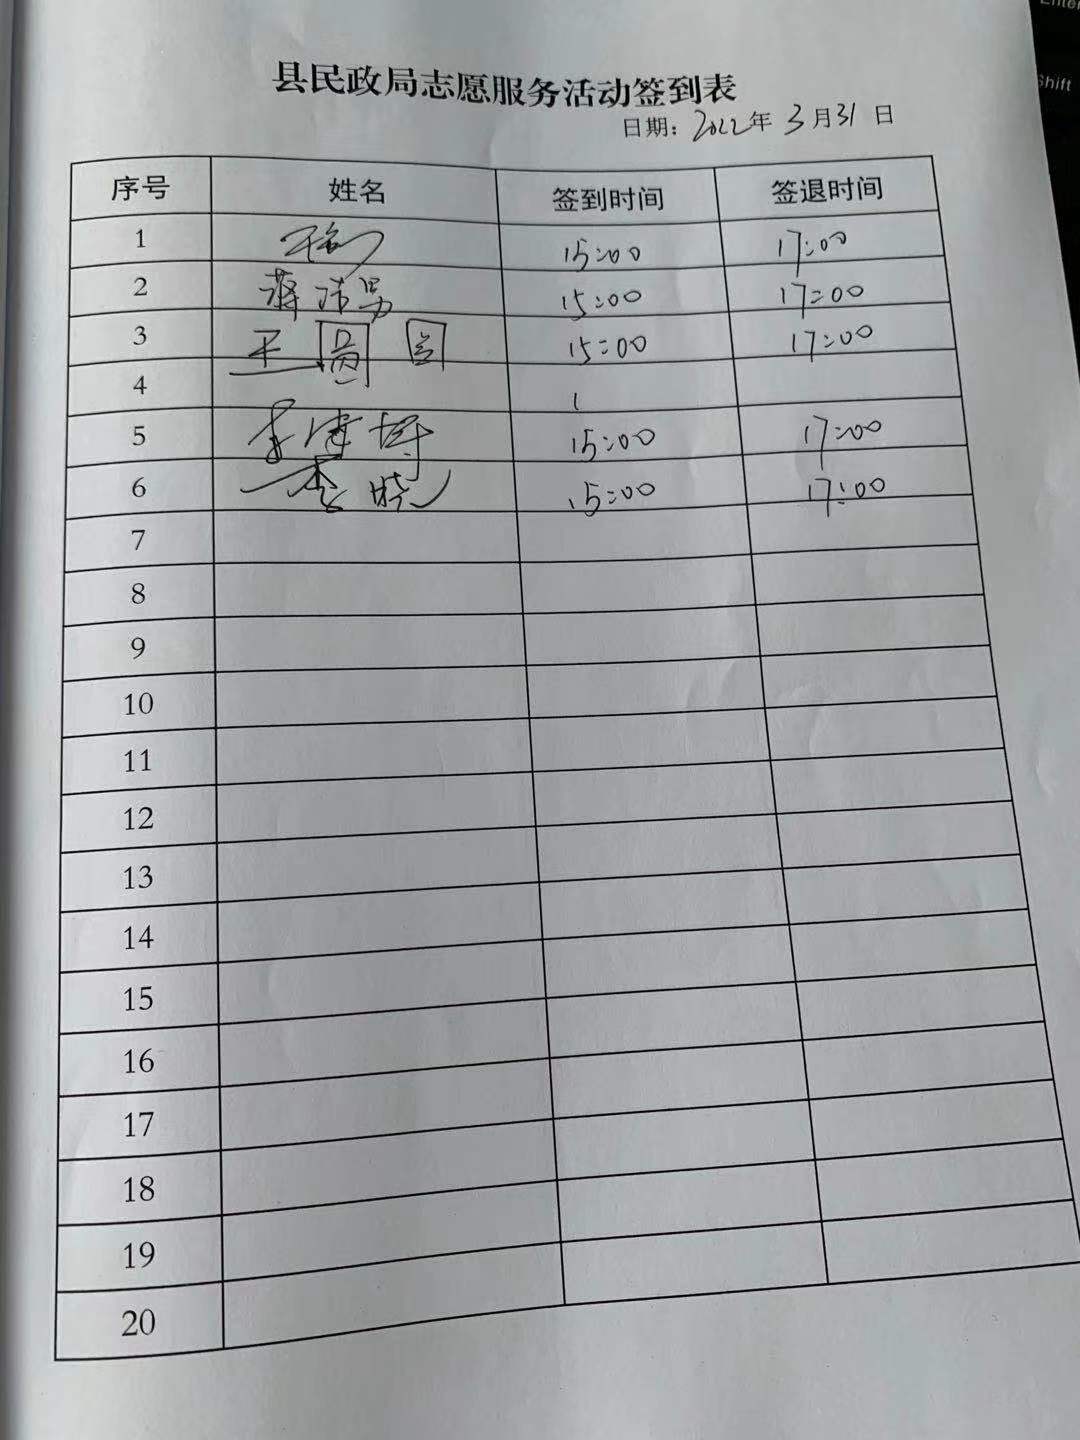 Enter
Shift
县民政局志愿服务活动签到表
日期：2022年 3月31日
序号 姓名 签到时间 签退时间
1 15:00 17:00
2 蒋 男 15:00 17:00
3 王圆圆 15:00 17:00
4
5 李建博 15:00 17:00
6 李晓 15:00 17:00
7
8
9
10
11
12
13
14
15
16
17
18
19
20